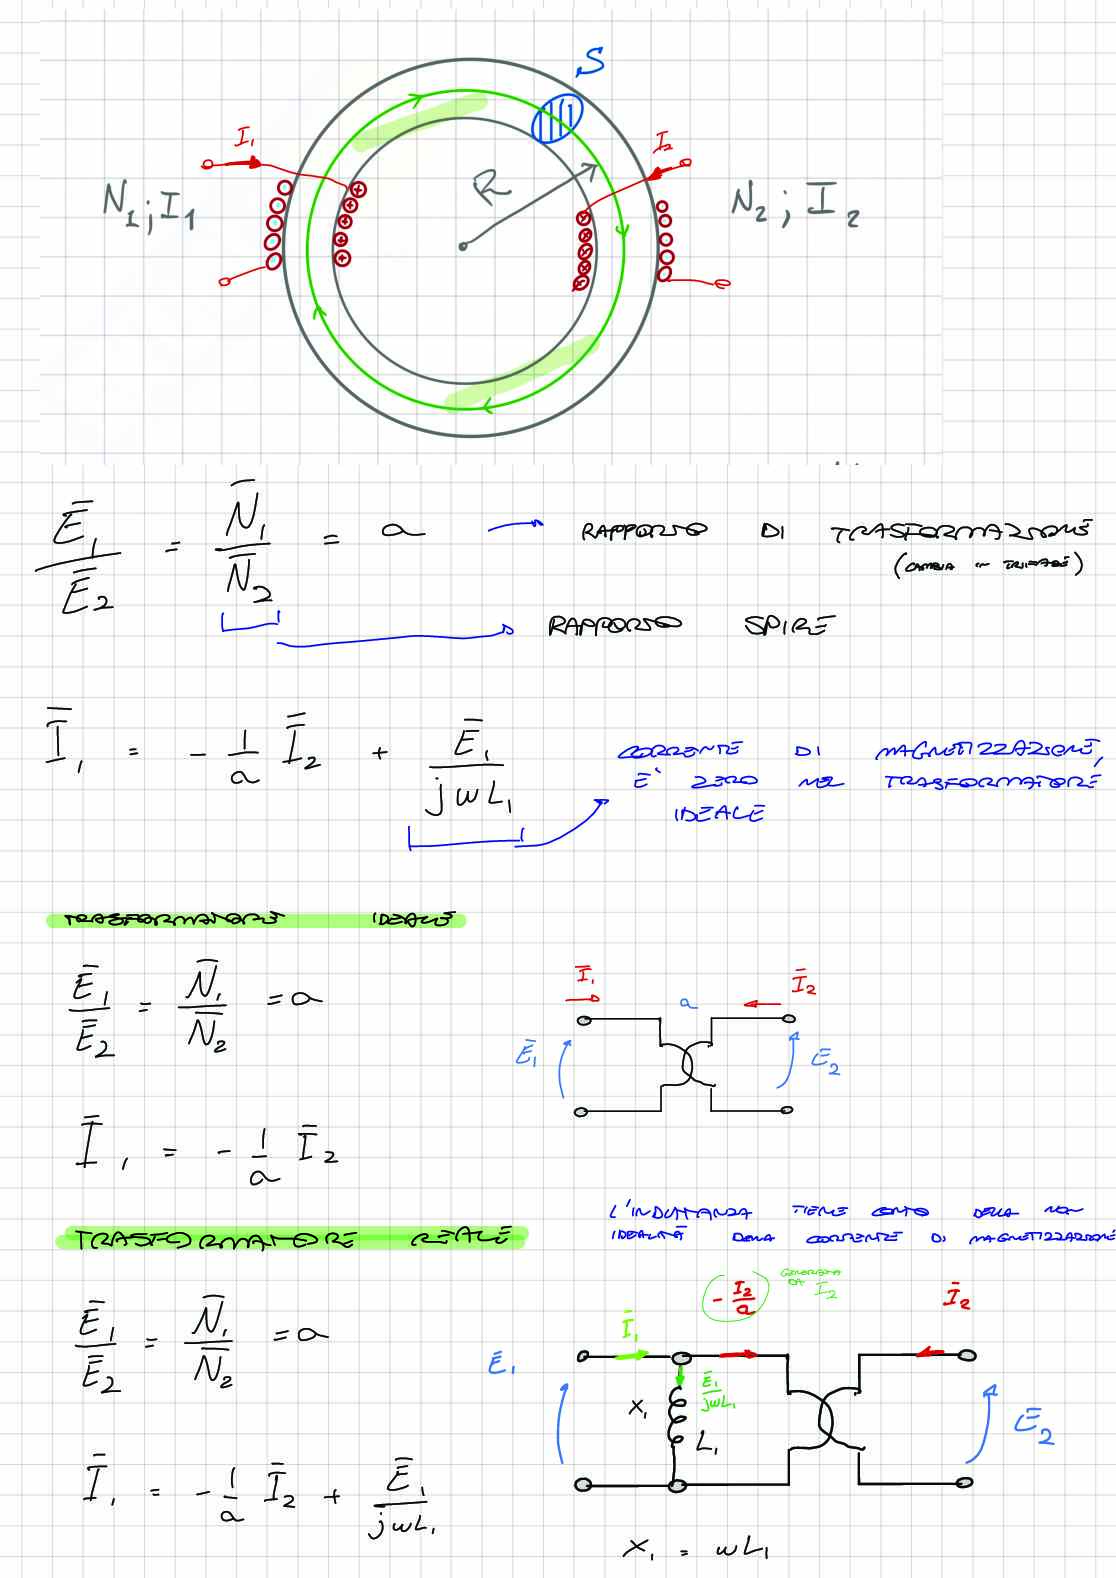 S
I₁
I₂
R
N₁; I₁
N₂; I₂
Ē₁/Ē₂ = N̄₁/N̄₂ = a → RAPPORTO DI TRASFORMAZIONE
(CAMBIA IN TRIFASE)
RAPPORTO SPIRE
Ī₁ = - 1/a Ī₂ + Ē₁/jωL₁
CORRENTE DI MAGNETIZZAZIONE,
E' ZERO NEL TRASFORMATORE
IDEALE
TRASFORMATORE IDEALE
Ē₁/Ē₂ = N̄₁/N̄₂ = a
Ī₁ a Ī₂
Ē₁ E₂
Ī₁ = - 1/a Ī₂
L'INDUTTANZA TIENE CONTO DELLA NON
IDEALITÀ DELLA CORRENTE DI MAGNETIZZAZIONE
TRASFORMATORE REALE
Ē₁/Ē₂ = N̄₁/N̄₂ = a
(- I₂/a) GENERATA DA I₂
Ī₁ Ī₂
Ē₁ Ē₁/jωL₁ E₂
X₁ L₁
Ī₁ = - 1/a Ī₂ + Ē₁/jωL₁
X₁ = ωL₁